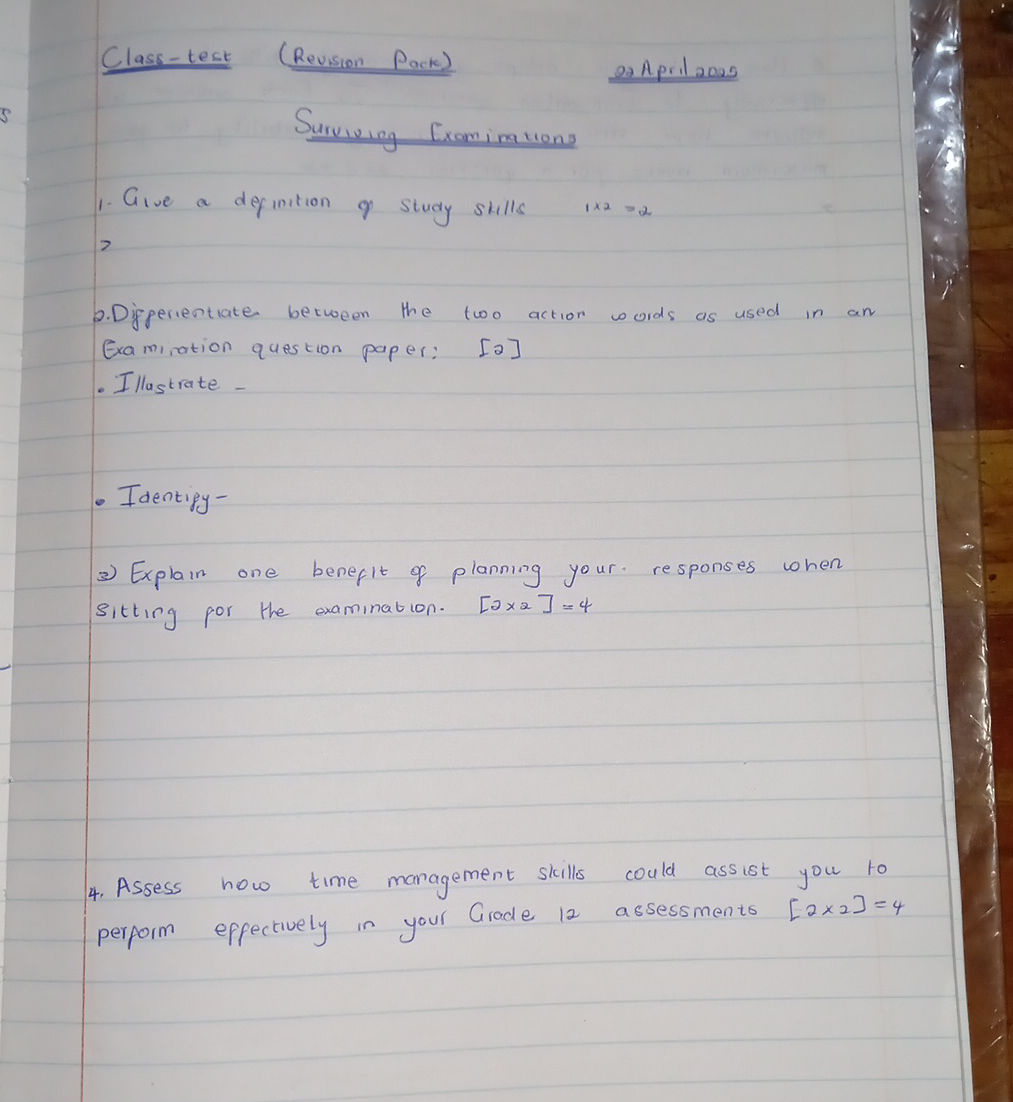 Class-test (Revision Pack) 22 April 2025
Surviving Examinations
1. Give a definition of study skills 1x2 = 2
>
2. Differientiate between the two action words as used in an
Examination question paper: [2]
• Illustrate -
• Identify -
3) Explain one benefit of planning your responses when
sitting for the examination. [2x2] = 4
4. Assess how time management skills could assist you to
perform effectively in your Grade 12 assessments [2x2] = 4